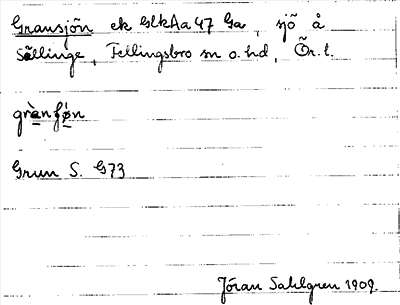 Gransjön ek GlkAa 47 Ga, sjö å
Sällinge, Fellingsbro sn o. hd, Ör. l.
grànfø̀n
Grun S. G73
Jöran Sahlgren 1909